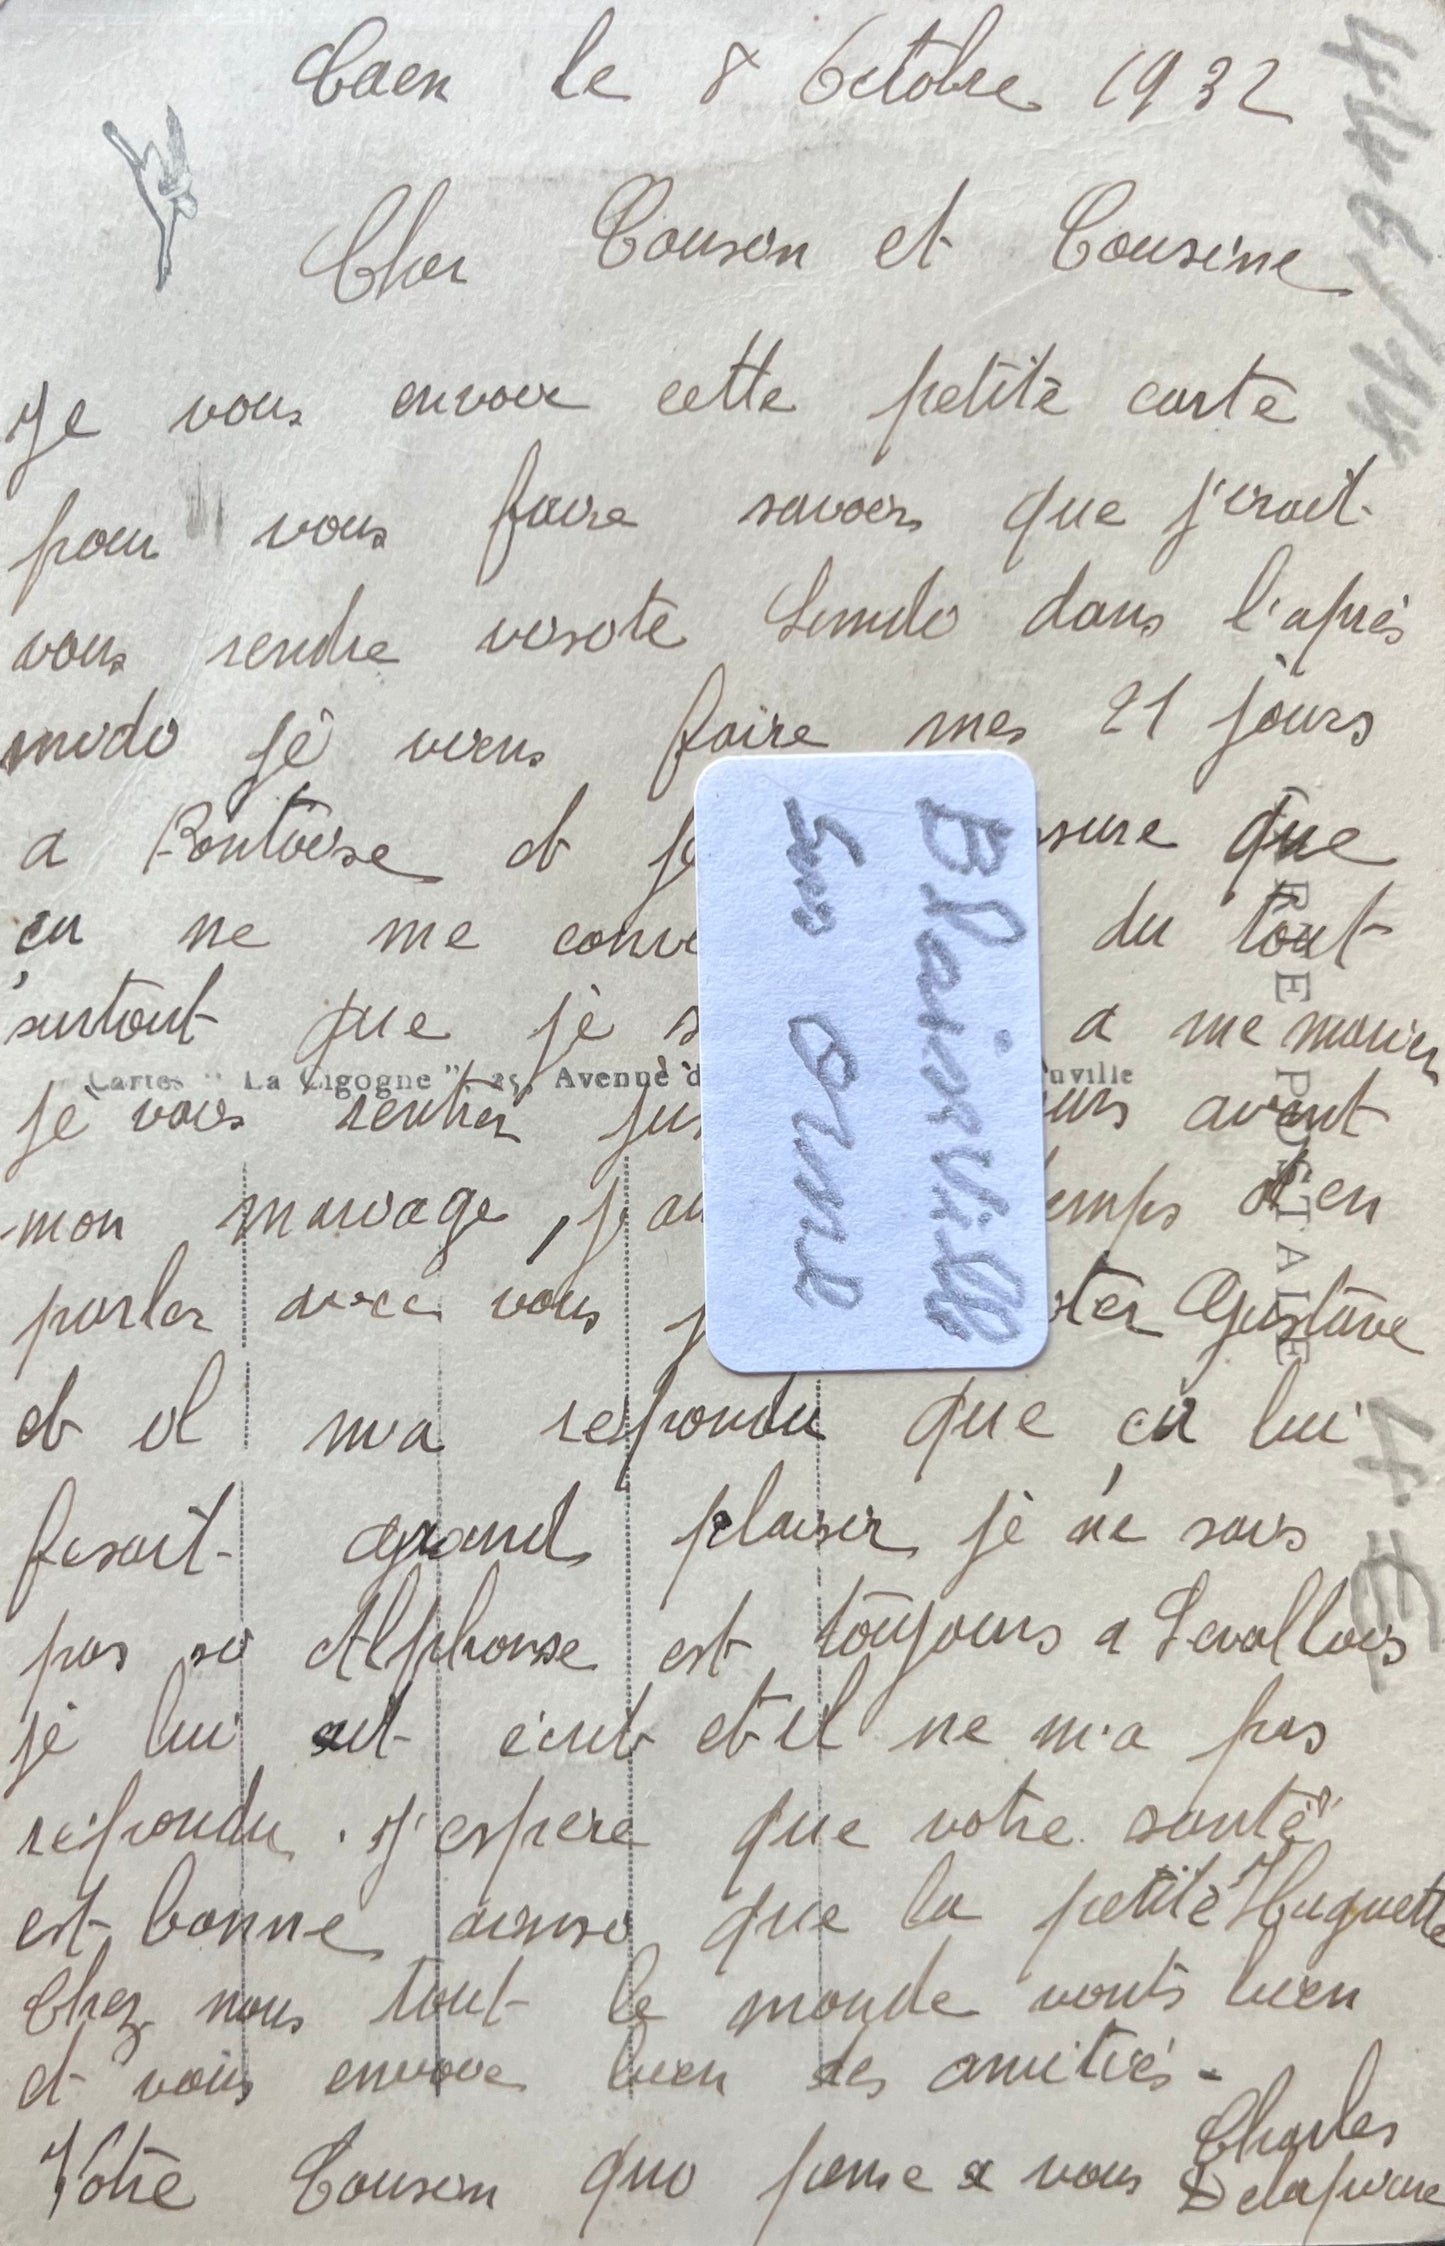 Caen le 8 Octobre 1932
Cher Cousin et Cousine
Je vous envoie cette petite carte
pour vous faire savoir que j'irait
vous rendre visite Lundi dans l'après
midi je viens faire mes 21 jours
a Pontoise et je sure que
ça ne me conv du tout
surtout que je s a me marier
Cartes "La Cigogne", 25, Avenue d uville
je vais rentrer jus urs avant
mon mariage, j'au emps d'en
parler avec vous j ter Gustave
et il m'a repondu que ça lui
fesait grand plaisir je ne sais
pas si Alphonse est toujours a Levallois
je lui ait écrit et il ne m'a pas
répondu. J'espere que votre santé
est bonne ainsi que la petite Huguette
Chez nous tout le monde vonts bien
et vous envoie bien des amitiés -
Votre Cousin qui pense a vous Charles
Delapierre
CARTE POSTALE
Blainville
sur Orne
4 €